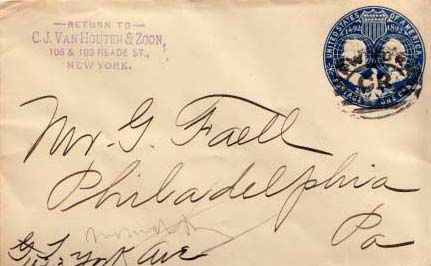 RETURN TO
C. J. VAN HOUTEN & ZOON,
106 & 103 READE ST.,
NEW YORK.
UNITED STATES OF AMERICA
1492 1892
ONE CENT
NEW YORK
CR
Mr. G. Faell
Philadelphia
Pa
York Ave